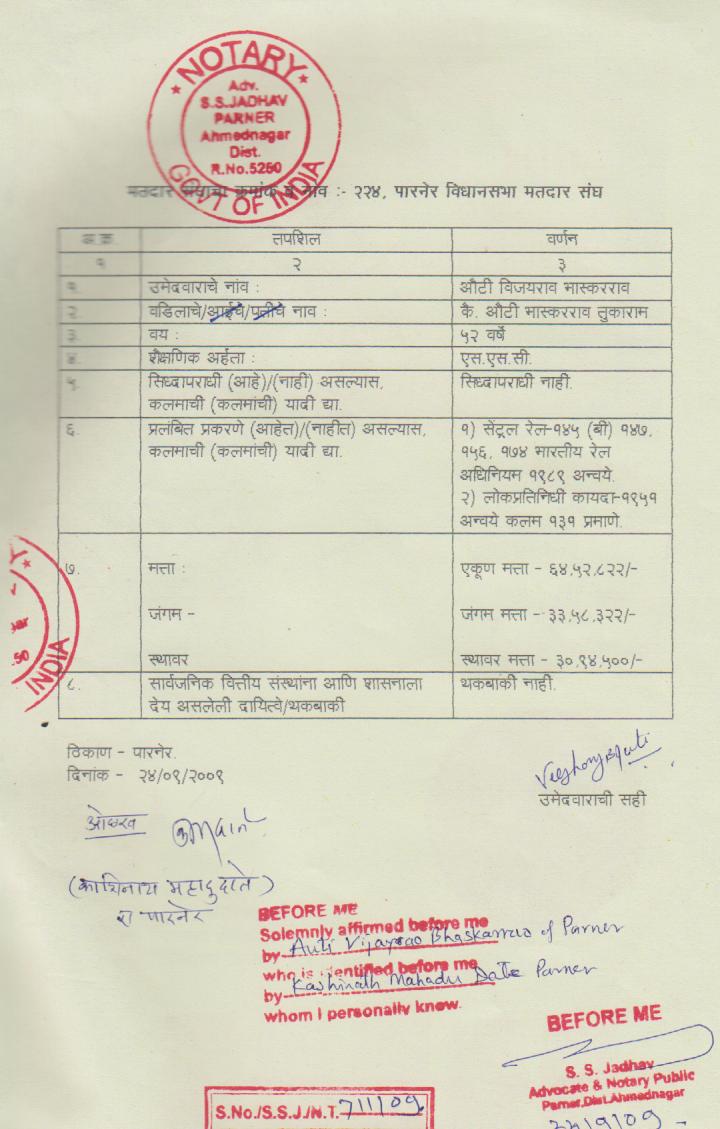 NOTARY
Adv.
S.S.JADHAV
PARNER
Ahmednagar
Dist.
R.No.5250
GOVT OF INDIA
मतदार संघाचा क्रमांक व नाव :- २२४, पारनेर विधानसभा मतदार संघ
अ.क्र. तपशिल वर्णन
१ २ ३
१. उमेदवाराचे नांव : औटी विजयराव भास्करराव
२. वडिलाचे/आईचे/पतीचे नाव : कै. औटी भास्करराव तुकाराम
३. वय : ५२ वर्षे
४. शैक्षणिक अर्हता : एस.एस.सी.
५. सिध्दापराधी (आहे)/(नाही) असल्यास, सिध्दापराधी नाही.
कलमाची (कलमांची) यादी द्या.
६. प्रलंबित प्रकरणे (आहेत)/(नाहीत) असल्यास, १) सेंट्रल रेल-१४५ (बी) १४७,
कलमाची (कलमांची) यादी द्या. १५६, १७४ भारतीय रेल
अधिनियम १९८९ अन्वये.
२) लोकप्रतिनिधी कायदा-१९५१
अन्वये कलम १३१ प्रमाणे.
७. मत्ता : एकूण मत्ता - ६४,५२,८२२/-
जंगम - जंगम मत्ता - ३३,५८,३२२/-
स्थावर स्थावर मत्ता - ३०,९४,५००/-
८. सार्वजनिक वित्तीय संस्थांना आणि शासनाला थकबाकी नाही.
देय असलेली दायित्वे/थकबाकी
INDIA
ठिकाण - पारनेर.
दिनांक - २४/०९/२००९
उमेदवाराची सही
ओळख
(काशिनाथ महादु दाते)
रा पारनेर
BEFORE ME
Solemnly affirmed before me
by Auti Vijayrao Bhaskarrao of Parner
who is identified before me
by Kashinath Mahadu Date Parner
whom I personally know.
BEFORE ME
S. S. Jadhav
Advocate & Notary Public
Parner,Dist.Ahmednagar
S.No./S.S.J/N.T. 711/09